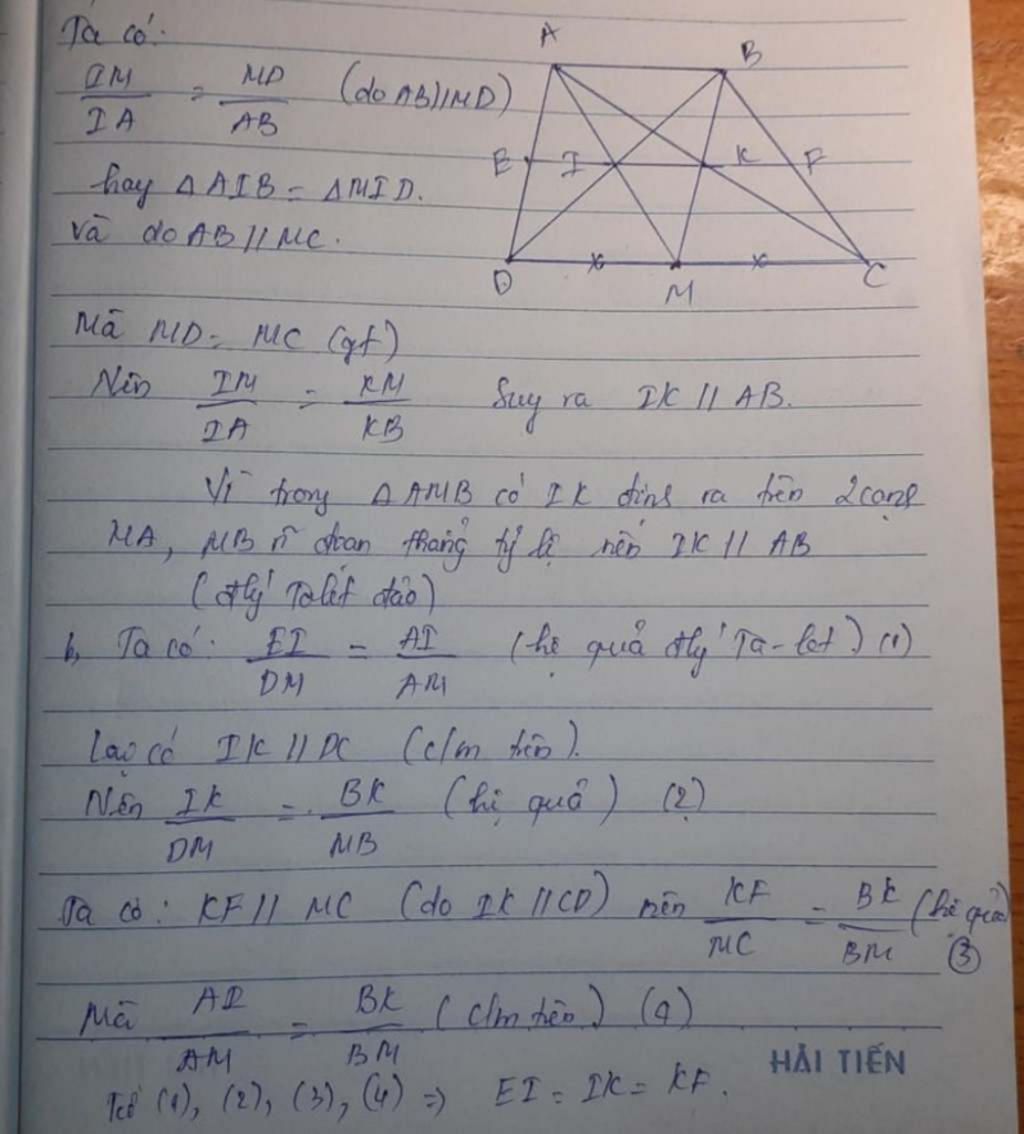 Ta có:
IM/IA = MD/AB (do AB//MD)
hay △AIB = △MID.
và do AB//MC.
A
B
E I K F
D M C
Mã MD = MC (gt)
Nên IM/IA = KM/KB Suy ra IK // AB.
Vì trong △AMB có IK định ra trên 2 cạnh
MA, MB n~ đoạn thẳng tỷ lệ nên IK // AB
(đlý Talét đảo)
b, Ta có: EI/DM = AI/AM (hệ quả đlý Ta-let) (1)
Lại có IK // DC (c/m trên).
Nên IK/DM = BK/MB (hệ quả) (2)
Ta có: KF // MC (do IK // CD) nên KF/MC = BK/BM (hệ quả)
(3)
Mã AI/AM = BK/BM (c/m trên) (4)
Từ (1), (2), (3), (4) => EI = IK = KF.
HẢI TIẾN